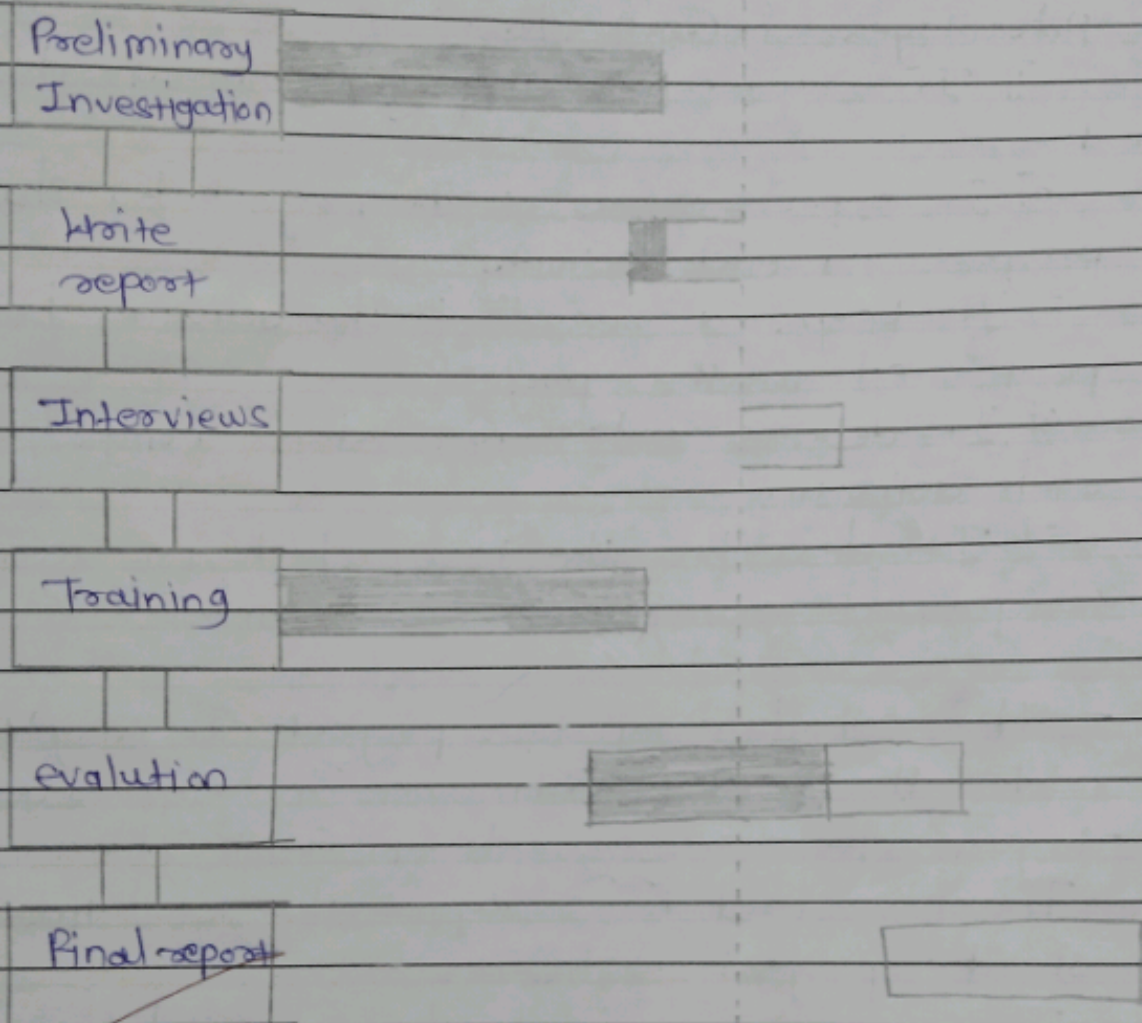 Preliminary
Investigation
Write
report
Interviews
Training
evalution
Final report